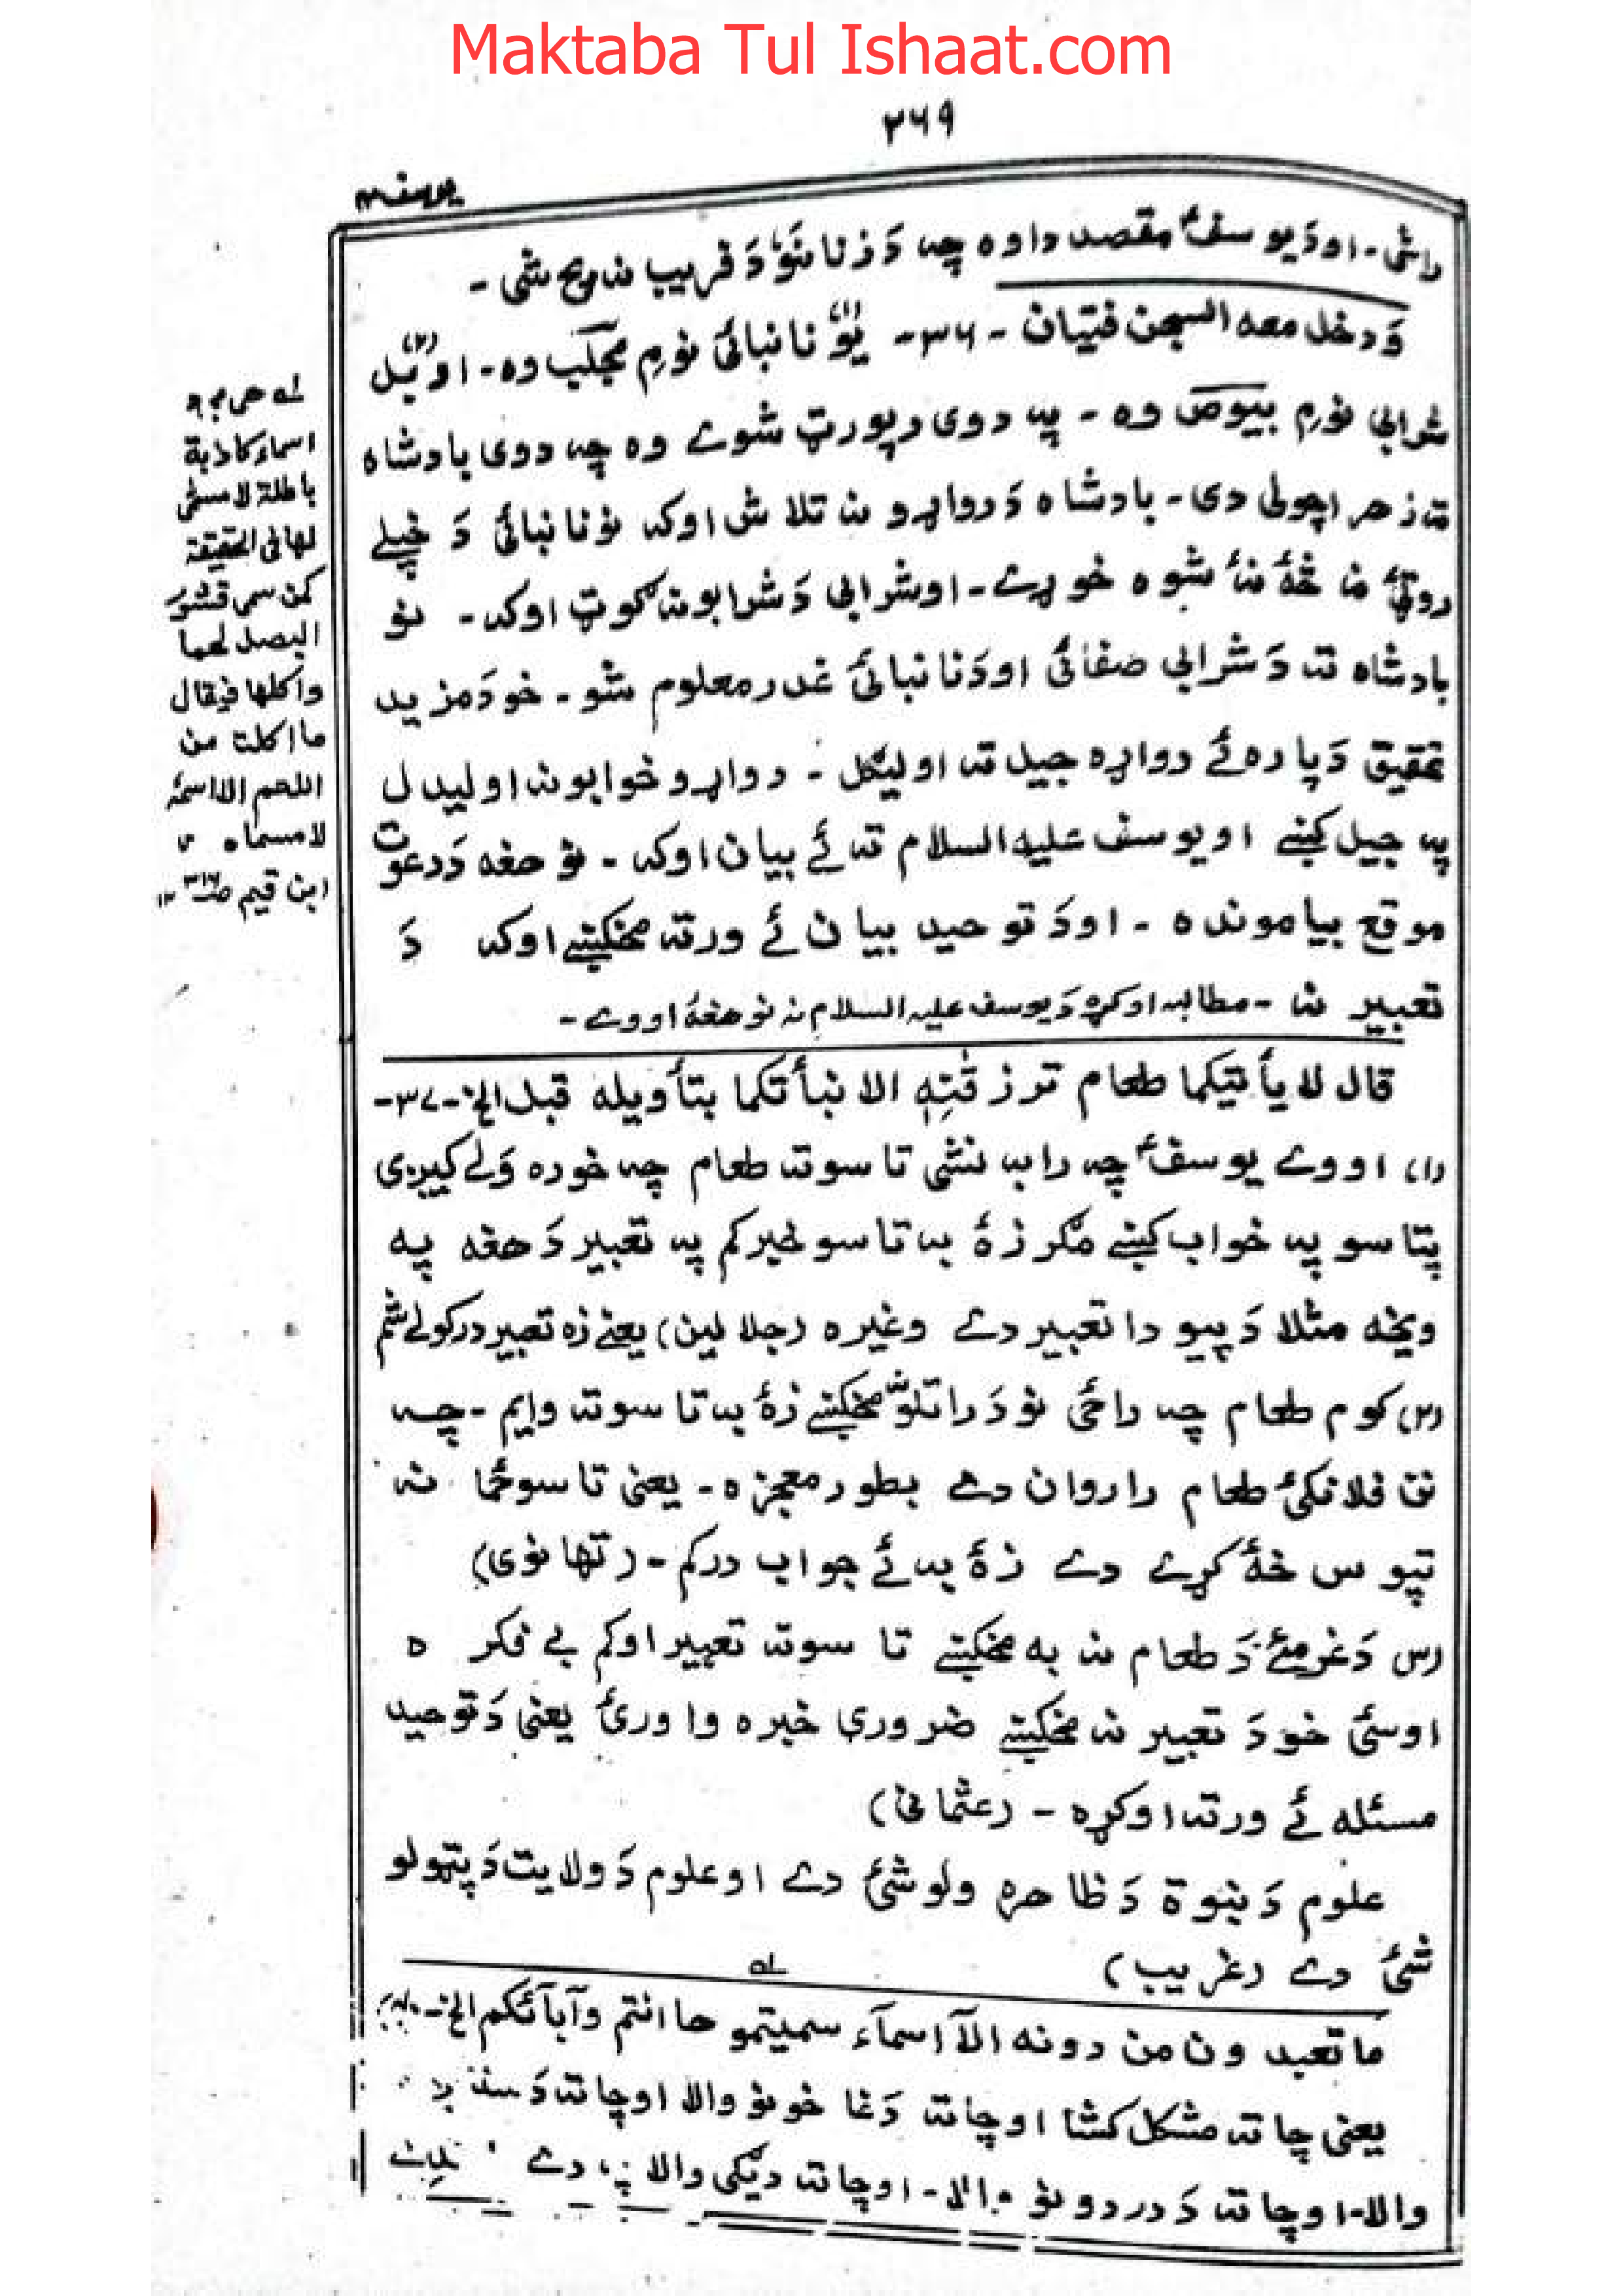 Maktaba Tul Ishaat.com
۲۶۹
یوسف
راشی - او د یوسفؑ مقصد دا وه چہ دَ زنانؤ دَ فریب نہ بچ شی -
وَدخل معہ السجن فتیان - ۳۶ - یؤ نانبائی نوم مجلب وہ - او بل
شرابی نوم بیوص وہ - پہ دوی رپورټ شوے وہ چہ دوی بادشاہ
تہ زہر اچولی دی - بادشاہ دَ دواړو نہ تلاش اوکہ نو نانبائی دَ خپلے
روټئ نہ څۂ نۂ شوہ خوړے - او شرابی دَ شرابو نہ ګوټ اوکہ - نو
بادشاہ تہ دَ شرابی صفائی او دَ نانبائی غدر معلوم شو - خو دَ مزید
تحقیق دَپارہ ئے دواړہ جیل تہ اولیګل - دواړو خوابونہ اولیدل
پہ جیل کښے او یوسف علیہ السلام تہ ئے بیان اوکہ - نو ھغہ دَ دعوت
موقع بیا موندہ - او دَ توحید بیان ئے ورتہ مخکښے اوکہ دَ
تعبیر نہ - مطالبہ اوکړہ دَ یوسف علیہ السلام نہ نو ھغۂ اووے -
قال لا یأتیکما طعام ترزقٰنِہٖ الا نبأتکما بتأویلہ قبل الخ - ۳۷ -
(۱) اووے یوسفؑ چہ رابہ نشی تاسو تہ طعام چہ خورہ وَلے کیږی
پتاسو پہ خواب کښے مګر زۂ بہ تاسو خبر کم پہ تعبیر دَ ھغہ پہ
ویخہ مثلا دَ پیو دا تعبیر دے وغیرہ (جلالین) یعنے زہ تعبیر درکولے شم
(۲) کوم طعام چہ راځی نو دَ راتلوُ مخکښے زۂ بہ تاسو تہ وایم - چہ
نن فلانکئ طعام را روان دے بطور معجزہ - یعنی تاسو ځما نہ
تپوس څۂ کړے دے زۂ بہ ئے جواب درکم - (تھانوی)
(۳) دَ غرمئے دَ طعام نہ بہ مخکښے تاسو تہ تعبیر اوکم بے فکرہ
اوسئ خو دَ تعبیر نہ مخکښے ضروری خبرہ واورئ یعنی دَ توحید
مسئلہ ئے ورتہ اوکړہ - (عثمانی)
علوم دَ نبوة دَ ظاھرہ ولو شئ دے او علوم دَ ولایت دَ پټولو
شئ دے (غریب)
لہ
ما تعبدون من دونہ الآ اسمآء سمیتموھا انتم وآبآئکم الخ -
یعنی چاتہ مشکل کشا او چاتہ دَغا خونو والا او چاتہ دَ
والا - او چاتہ دَ دردونو والا - او چاتہ دیګی والا دے
لہ
اسماء کاذبۃ
باطلۃ لا مسمّٰی
لھا فی الحقیقۃ
کمن سمی قشور
البصل لحما
واکلھا فیقال
ما اکلت من
اللحم الا اسمہٗ
لا مسماہ
ابن قیم ۱۲